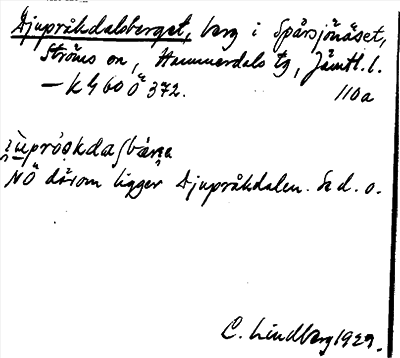 Djupråkdalsberget, berg i Spårsjönäset,
Ströms sn, Hammerdals tg, Jämtl. l.
— K 4600 Ö 372. 110a
NÖ därom ligger Djupråkdalen. Se d. o.
C. Lindberg 1929.